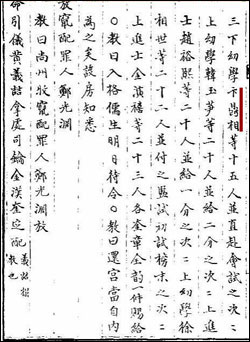 三下幼學卞鼎相等十五人並直赴會試之次二
上幼學韓玉夢等二十人並給二分之次二上進
士趙裕熙等二十人並給一分之次二上幼學徐
相世等二十二人並付之監試初試榜末之次二
上進士金演禧等二十三人各奎章全韻一件賜給
○敎曰入格儒生明日待令○敎曰還宮當自內
爲之矣政房知悉
放竄配罪人鄭光淵
敎曰尙州牧竄配罪人鄭光淵放
命引儀黃義喆拿處司鑰金漢奎定配